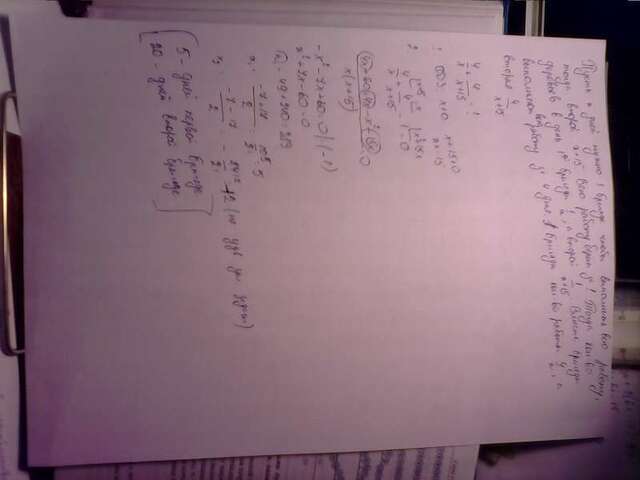 Пусть x дней нужно 1 бригаде чтобы выполнить всю работу,
тогда второй x+15. Всю работу берём за 1. Тогда кол-во
деревьев в день 1ой бригады 1/x, а второй 1/x+15. Вместе бригады
выполняют всю работу за 4 дня. 1 бригада кол-во работы 4/x, а
вторая 4/x+15
4/x + 4/x+15 = 1
1. ОДЗ: x≠0 x+15≠0
x≠-15
2. 4/x + 4/x+15 - 1 = 0
4x+60+4x-x²-15x / x(x+15) = 0
-x²-7x+60=0 |·(-1)
x²+7x-60=0
D = 49+240=289
x₁ = -7+17/2 = 10/2 = 5
x₂ = -7-17/2 = -24/2 = -12 (не удв усл задачи)
5 - дней первой бригаде
20 - дней второй бригаде